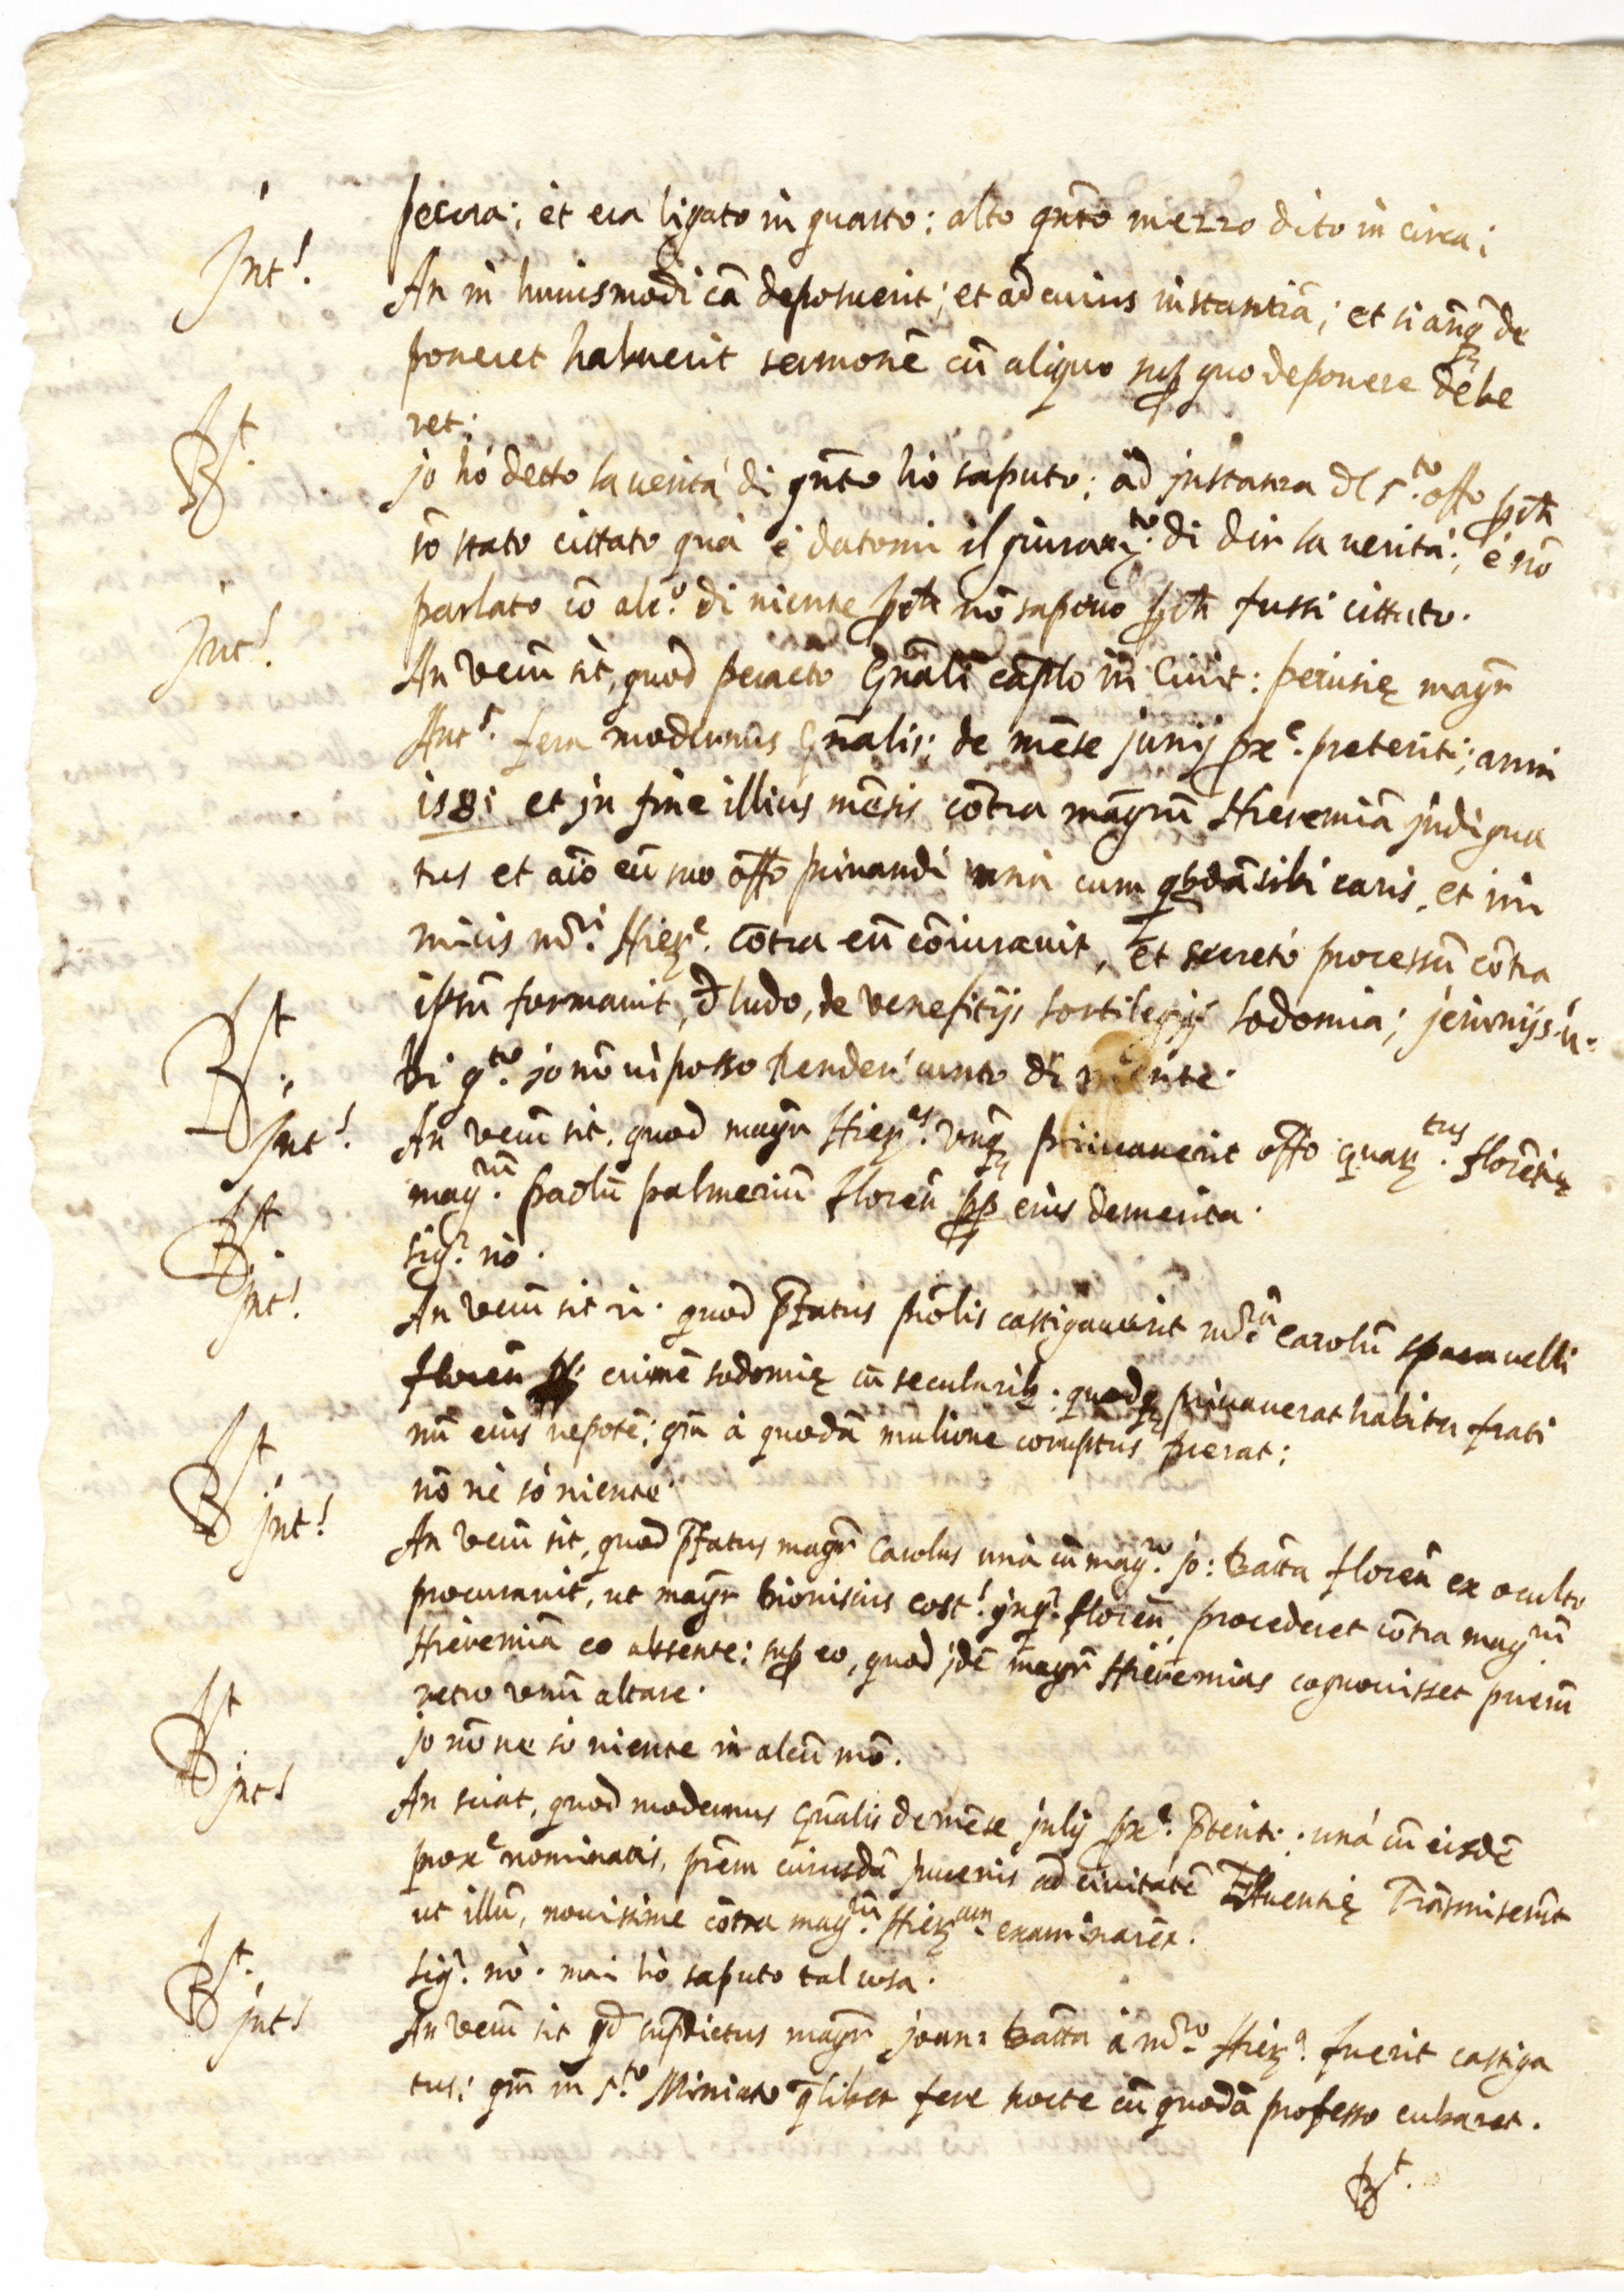 pecora; et era ligato in quarto: alto qnto mezzo dito in circa;
Int! An in huiusmodi cā deposuerit; et ad cuius instantiā; et si anq̄ de
poneret habuerit sermonē cū aliquo sup quo deponere debe
ret;
Rt. jo hò detto la verità di qnto hò saputo; ad instanza dl s.to offo pch
sō stato cittato quà è datomi il giuram.to di dir la verità; è nō
parlato cō alc.o di niente pch nō sapevo pch fussi cittato.
Int! An verū sit, quod peracto Gn̄ali cāplo in Civit: perusię magr
Ant.s fera modernus Gn̄alis; de mēse junij px.e preteriti; anni
158i et in fine illius mēsis cōtra magrū Hieremiā indigna
tus et aīo eū suo offo privandi una cum qbdā sibi caris, et ini
micis mri Hier.e cōtra eū cōiuravit, et secretò processū cōtra
ipsū formavit, d ludo, de venefitijs sortilegijs sodomia; jeiunijs
Rt. Di q.to jo nō vi posso render cunto di niente.
Int! An verū sit, quod magr Hier.as unq̄ privaverit offo florētię
mag.rū paolū palmeriū florēn pp eius demerita.
Rt. sig.r nò.
Int! An verū sit quod pfatus piōlis castigaverit m.rū Carolū sparavelli
florēn crimē sodomię cū secularib; privaverat habitu frati
nū eius nepotē; qm̄ à quodā mulione corruptus fuerat;
Rt. nō nè sò niente.
int! An verū sit, quod pfatus magr Carolus unà cū mag.ro jo: batta florēn ex oculto
procuravit, ut magr Dionisius cost! jnq.r florēn, procederet cōtra mag.rū
Hieremiā eo absente; sup eo, quod jdē magr Hieremias cognovisset puerū
retro unū altare.
Rt jo nō ne sò niente in alcū mō.
int! An sciat, quod modernus Gn̄alis de mēse julij px.e pteriti; unà cū eisdē
prox.e nominatis, prēm cuiusdā juvenis ad civitatē Trāsmiserūt
ut illū, novissime cōtra mag.rū Hier.am examinarēt.
Rt. sig.r nò. mai hò saputo tal cosa.
int! An verū sit qd supdictus magr joan: batta à m.ro Hier.a fuerit castiga
tus; qm̄ in s.to Miniato qlibet fere nocte cū quodā professo cubaret.
Rt.